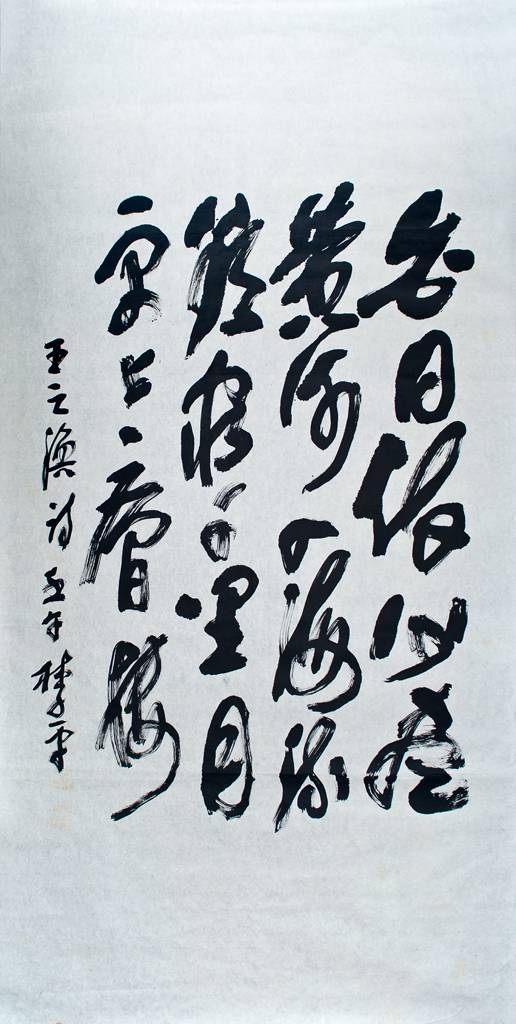 白日依山尽
黄河入海流
欲穷千里目
更上一層楼
王之渙诗 午